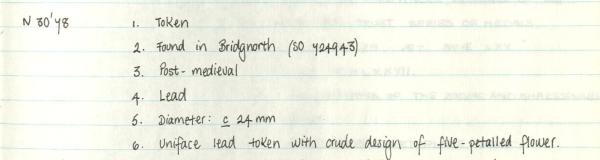 N 30'78
1. Token
2. Found in Bridgnorth (SO 724943)
3. Post-medieval
4. Lead
5. Diameter: c 24 mm
6. Uniface lead token with crude design of five-petalled flower.